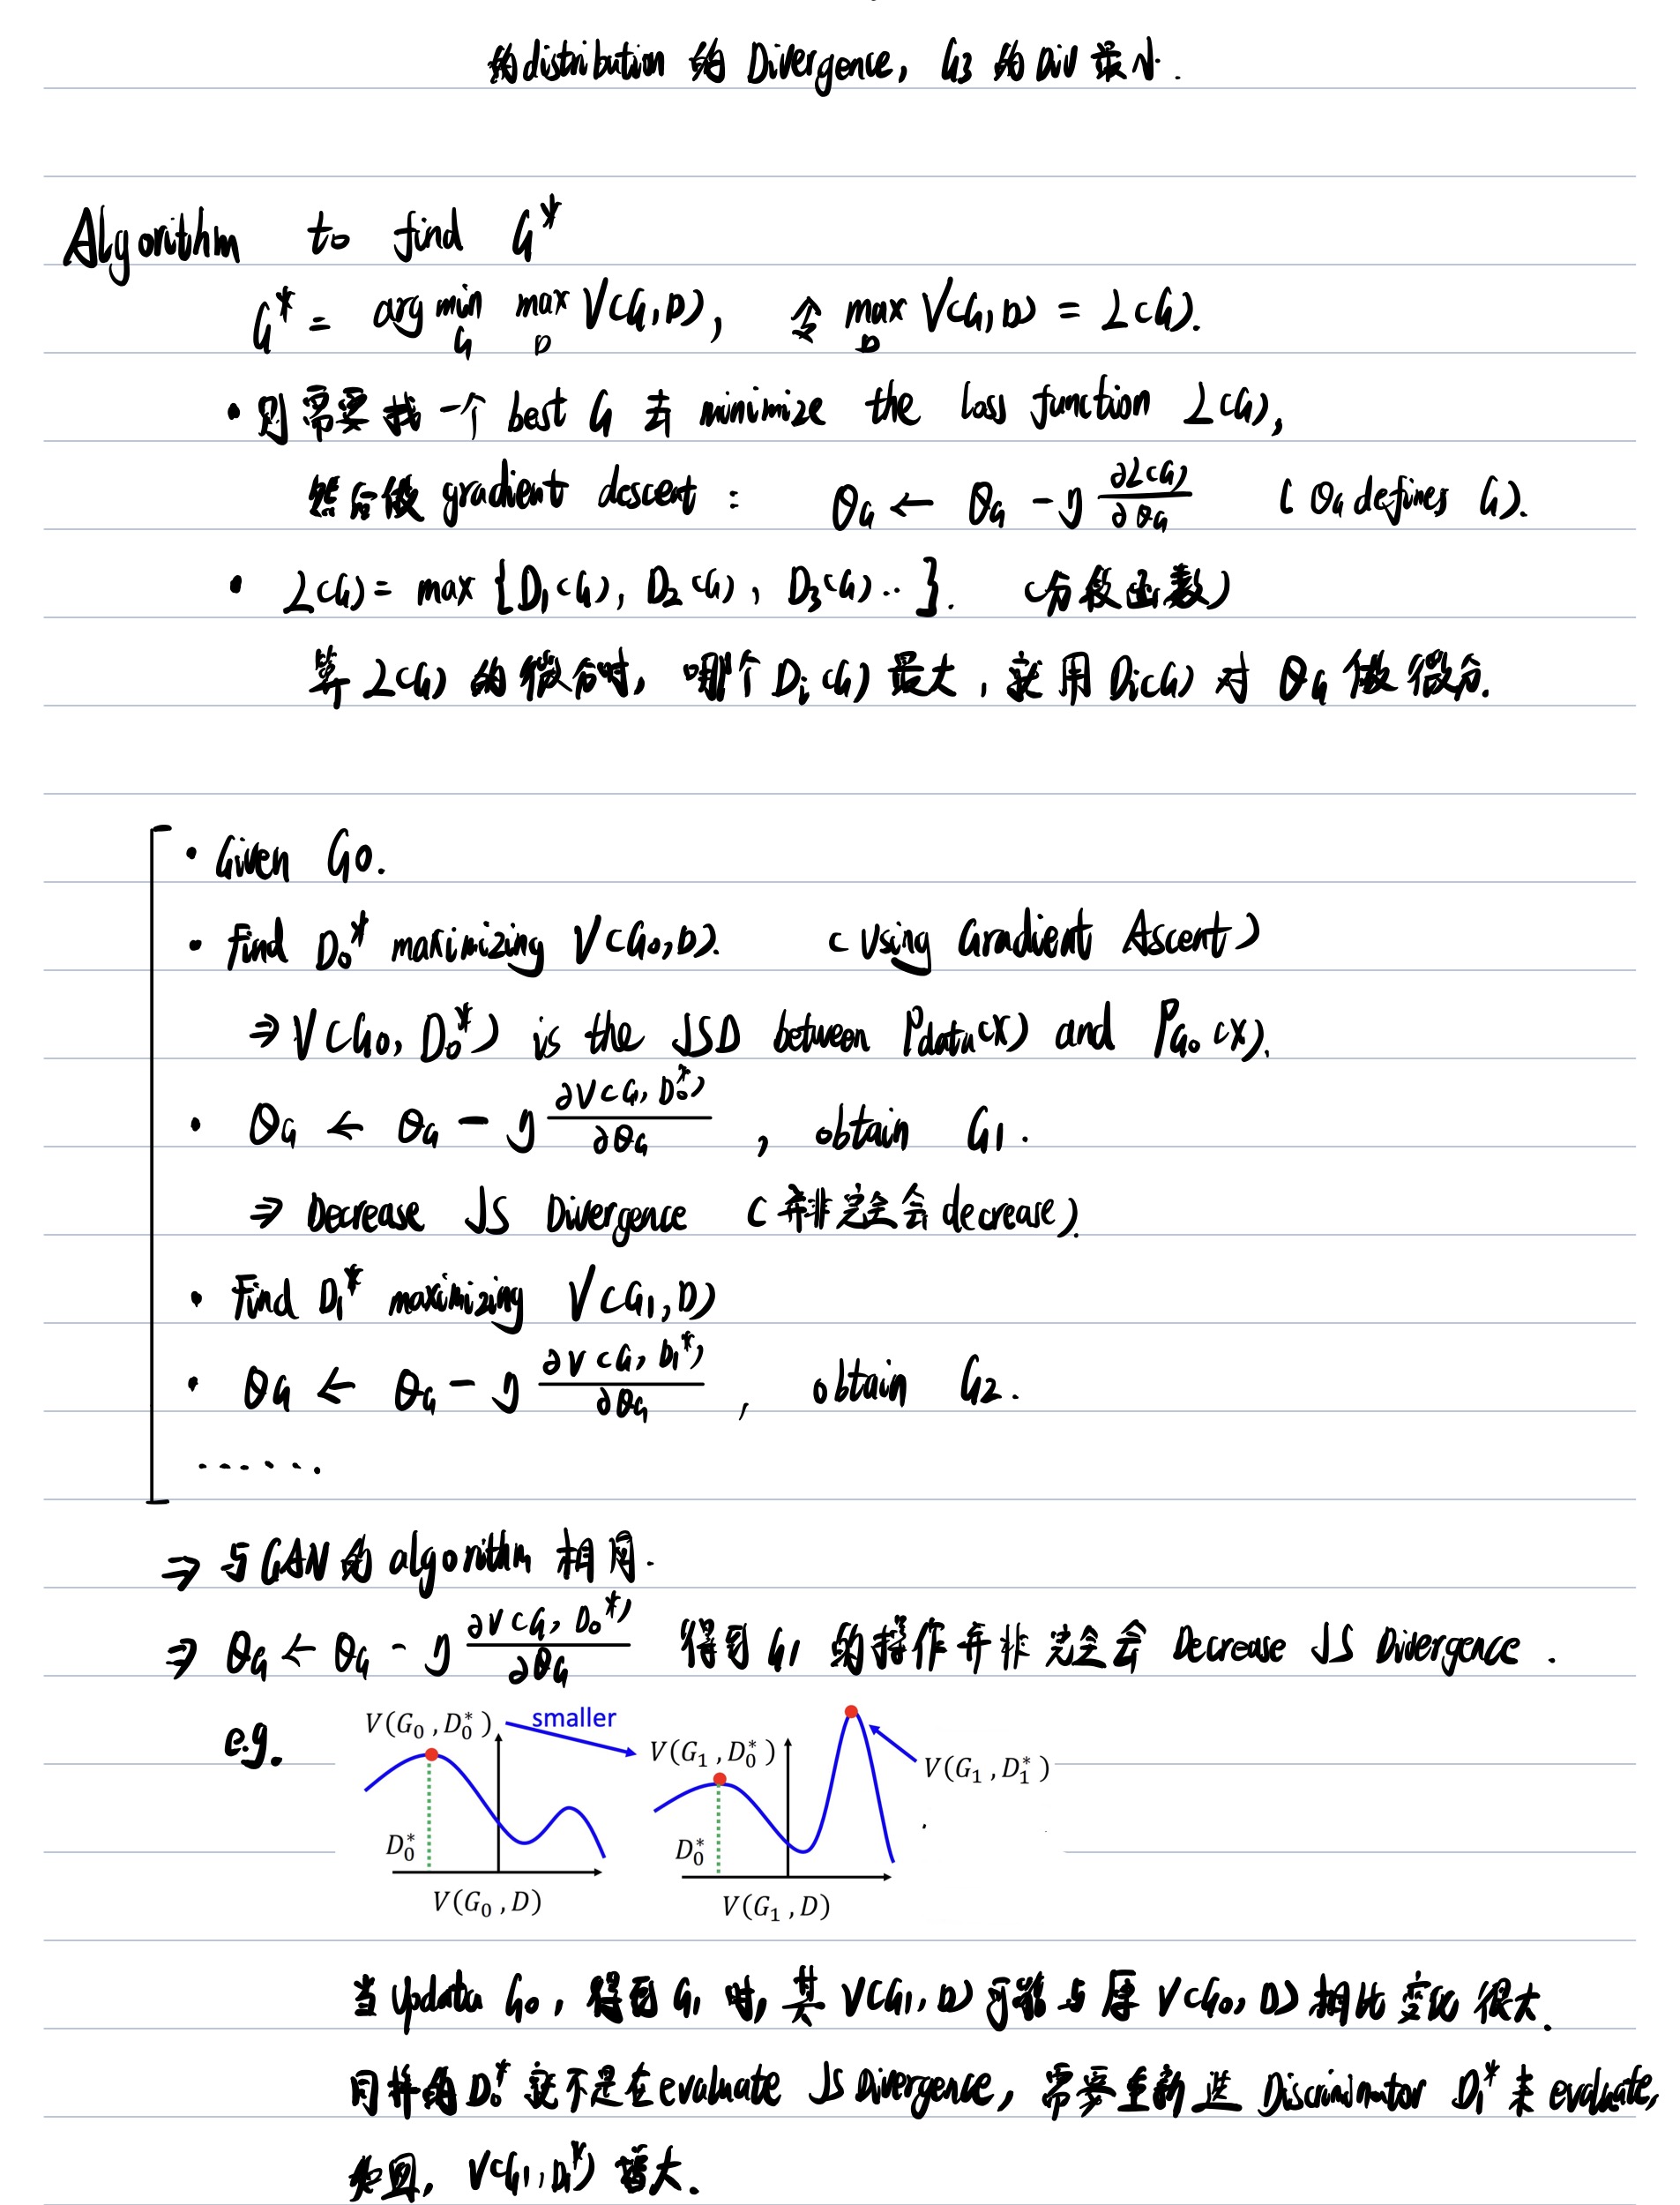 的distribution 的 Divergence, G3 的 Div 最小.
Algorithm to find G*
G* = arg min_G max_D V(G,D), 令 max_D V(G,D) = L(G).
• 则需要找一个 best G 去 minimize the loss function L(G),
然后做 gradient descent : θ_G ← θ_G - η ∂L(G)/∂θ_G ( θ_G defines G).
• L(G) = max {D₁(G), D₂(G), D₃(G)..}. (分段函数)
算 L(G) 的微分时, 哪个 Dᵢ(G) 最大, 就用 Dᵢ(G) 对 θ_G 做微分.
• Given G0.
• Find D₀* maximizing V(G₀,D). (Using Gradient Ascent)
⇒ V(G₀, D₀*) is the JSD between Pdata(x) and P_G₀(x).
• θ_G ← θ_G - η ∂V(G, D₀*)/∂θ_G , obtain G₁.
⇒ Decrease JS Divergence (并非完全会 decrease).
• Find D₁* maximizing V(G₁,D)
• θ_G ← θ_G - η ∂V(G, D₁*)/∂θ_G , obtain G₂.
......
⇒ 与GAN的 algorithm 相同.
⇒ θ_G ← θ_G - η ∂V(G, D₀*)/∂θ_G 得到 G₁ 的操作并非完全会 Decrease JS Divergence .
e.g.
V(G₀ , D₀*) smaller V(G₁ , D₀*) V(G₁ , D₁*)
D₀* D₀*
V(G₀ , D) V(G₁ , D)
当 updata G₀, 得到 G₁ 时, 其 V(G₁, D) 可能与原 V(G₀, D) 相比变化很大.
同样的 D₀* 就不是在 evaluate JS Divergence, 需要重新选 Discriminator D₁* 来 evaluate,
如图, V(G₁, D₁*) 增大.